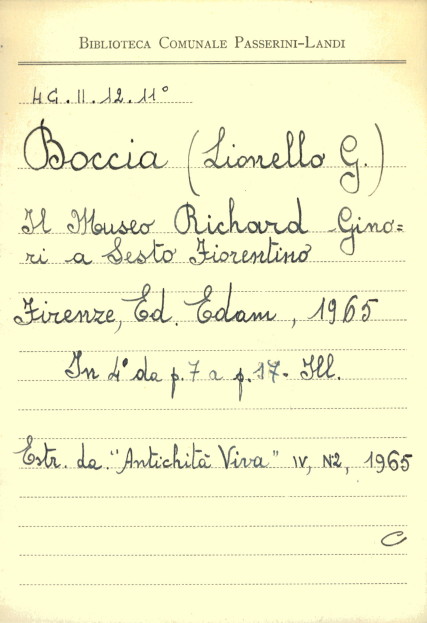 BIBLIOTECA COMUNALE PASSERINI-LANDI
4G.II.12.11°
Boccia (Lionello G.)
Il Museo Richard Gino=
ri a Sesto Fiorentino
Firenze, Ed. Edam, 1965
In 4° da p. 7 a p. 17. Ill.
Estr. da "Antichità Viva" IV, N2, 1965
C